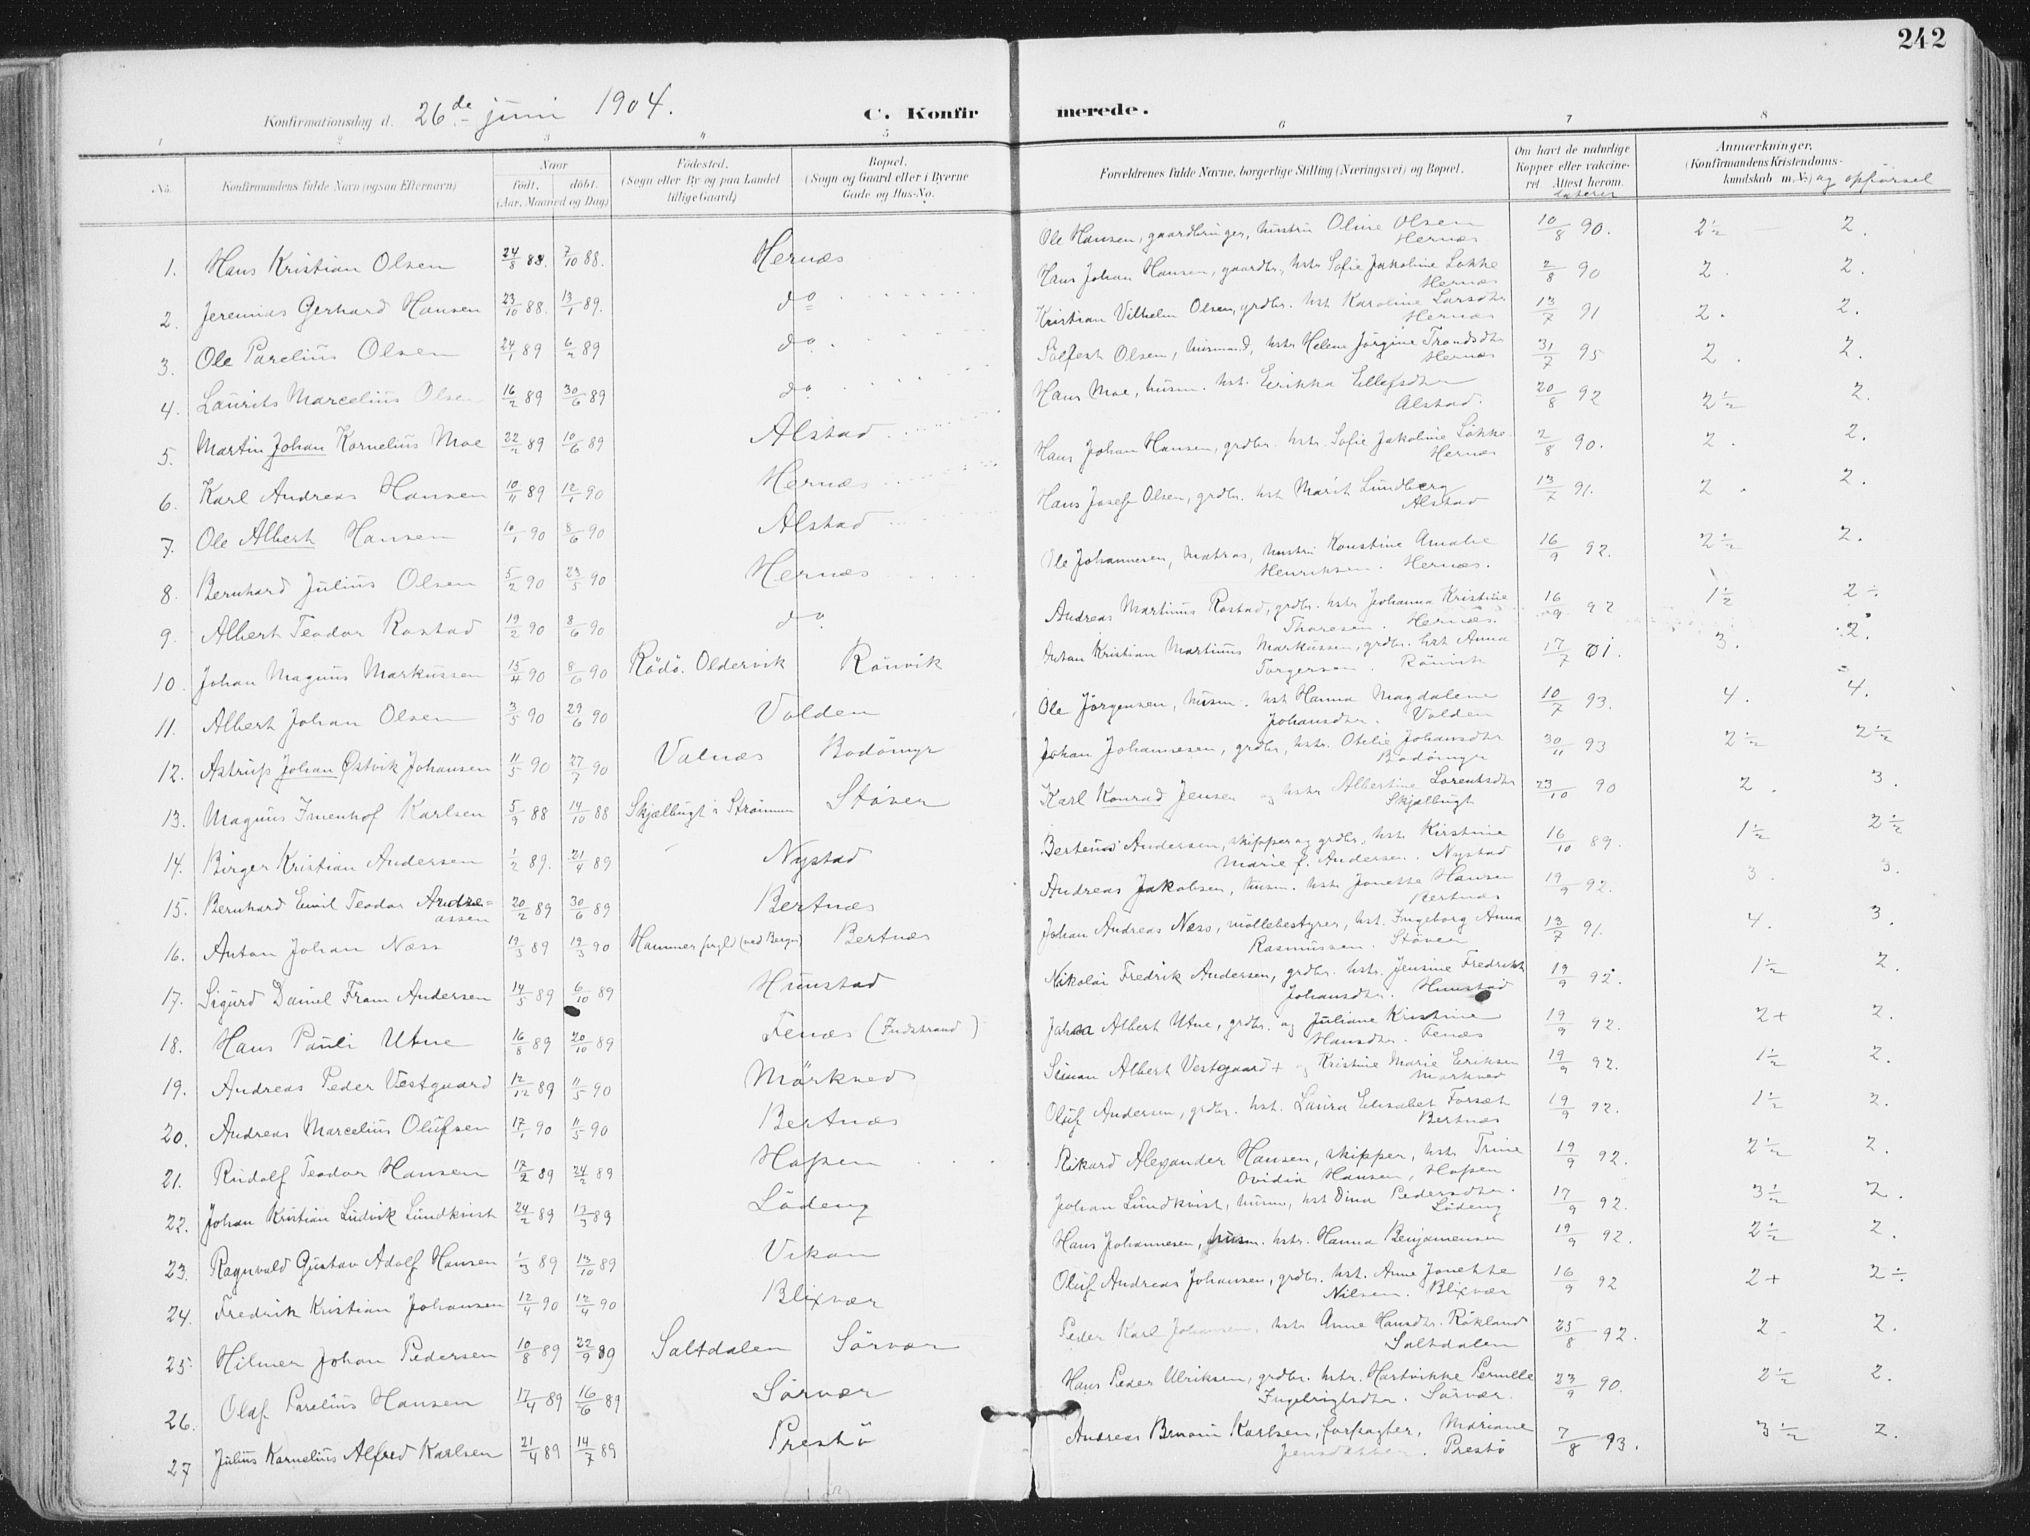 242
Konfirmationsdag d. 26de juni 1904.
C. Konfirmerede.
1 2 3 4 5 6 7 8
No.
Konfirmandens fulde Navn (ogsaa Efternavn)
Naar
født. døbt.
(Aar, Maaned og Dag)
Fødested.
(Sogn eller By og paa Landet
tillige Gaard)
Bopæl.
(Sogn og Gaard eller i Byerne
Gade og Hus-No.
Forældrenes fulde Navne, borgerlige Stilling (Næringsvei) og Bopæl.
Om havt de naturlige
Kopper eller vakcine-
ret. Attest herom.
dateret
Anmærkninger.
(Konfirmandens Kristendoms-
kundskab m. v.) og opførsel
1. Hans Kristian Olsen 24/8 88. 7/10 88. Hernæs Ole Hansen, gaardbruger, hustru Oline Olsen Hernæs 10/8 90. 2½ 2.
2. Jeremias Gerhard Hansen 23/10 88. 13/1 89. do Hans Johan Hansen, gaardbr., hstr. Sofie Jakobine Løkke Hernæs 2/8 90 2. 2.
3. Ole Parelius Olsen 24/1 89 6/2 89 do Kristian Vilhelm Olsen, grdbr. hst. Karoline Larsdtr Hernæs 13/7 91 2. 2.
4. Laurits Marcelius Olsen 16/2 89 30/6 89 do Solfest Olsen, husmand, hstr Helene Jørgine Trondsdtr Hernæs 31/7 95 2. 2.
5. Martin Johan Kornelius Moe 22/2 89 10/6 89 Alstad Hans Moe, husm. hst. Erikka Ellefsdtr Alstad. 20/8 92 2½ 2.
6. Karl Andreas Hansen 10/11 89 12/1 90 Hernæs Hans Johan Hansen, grdbr. hstr. Sofie Jakobine Løkke Hernæs 2/8 90. 2. 2.
7. Ole Albert Hansen 10/1 90 8/6 90 Alstad Hans Josef Olsen, grdbr. hst Marit Lundberg Alstad 13/7 91. 2. 2.
8. Bernhard Julius Olsen 5/2 90 23/5 90 Hernæs Ole Johannesen, matros, hustru Konstine Amalie Henriksen. Hernæs. 16/9 92. 2½ 2.
9. Albert Teodor Rostad 19/2 90 8/6 90 do Andreas Martinus Rostad, grdbr. hstr Johanna Kristine Thoresen. Hernæs. 16/9 92 1½ 2÷
10. Johan Magnus Markussen 15/4 90 8/6 90 Rödö. Oldervik Rönvik Anton Kristian Martinus Markussen, grdbr. hst. Anna Torgersen Rönvik 17/7 01. 3. 2.
11. Albert Johan Olsen 3/5 90 29/6 90 Volden Ole Jörgensen, husm. hst Hanna Magdalene Johansdtr. Volden 10/7 93. 4. 4.
12. Astrup Johan Østvik Johansen 11/5 90 27/7 90 Valnæs Bodömyr Johan Johannesen, grdbr, hstr. Otelie Johansdtr Bodömyr 30/11 93 2½ 2½
13. Magnus Imenhof Karlsen 5/9 88 14/10 88 Skjælbugt i Strømmen Støver Karl Konrad Jensen og hstr Albertine Lorentsdtr Skjælbugt 23/10 90 2. 3.
14. Birger Kristian Andersen 1/2 89. 21/4 89 Nystad Berteus Andersen, skipper og grdbr, hstr Kirstine Marie f. Andersen. Nystad 16/10 89. 1½ 2½
15. Bernhard Emil Teodor Andreassen 20/2 89 30/6 89 Bertnæs Andreas Jakobsen, husm. hstr Jonette Hansen Bertnæs 19/9 92. 3. 3.
16. Anton Johan Næss 19/3 89 19/3 90 Hammer prgld (ved Bergen) Bertnæs Johan Andreas Næss, møllebestyrer, hst. Ingeborg Anna Rasmussen. Støver 13/7 91. 4. 3.
17. Sigurd Daniel Fram Andersen 14/5 89 6/10 89 Hunstad Nikolai Fredrik Andersen, grdbr. hstr. Jensine Fredrikk Johansdtr. Hunstad 19/9 92. 1½ 2.
18. Hans Pauli Utne 16/8 89 20/10 89 Fenæs (Indstrand) Johan Albert Utne, grdbr. og Juliane Kristine Hansdtr. Fenæs 19/9 92. 2+ 2.
19. Andreas Peder Vestgaard 12/12 89 11/5 90 Mörkved Simon Albert Vestgaard + og Kristine Marie Eriksen Mørkved 19/9 92. 1½ 2.
20. Andreas Marcelius Olufsen 17/1 90 11/5 90 Bertnæs Oluf Andersen, grdbr. hst. Laura Elisabet Forset Bertnæs 19/9 92. 1½ 2.
21. Rudolf Teodor Hansen 17/2 89 24/2 89 Hopen Rikard Alexander Hansen, skipper, hstr Trine Ovidia Hansen, Hopen 19/9 92. 2½ 2.
22. Johan Kristian Ludvik Lundkvist 24/2 89 17/3 89 Löding Johan Lundkvist, husm, hst Dina Pedersdtr. Löding 17/9 92. 3½ 2.
23. Ragnvald Gustav Adolf Hansen 1/3 89 13/10 89 Vikan Hans Johannesen, husm. hstr. Hanna Benjamensen 19/9 92. 2½ 2.
24. Fredrik Kristian Johansen 12/4 90 12/4 90 Blixvær Oluf Andreas Johansen, grdbr. hst. Anne Jonette Nilsen. Blixvær 16/9 92 2+ 2÷
25. Hilmer Johan Pedersen 10/8 89 22/9 89 Saltdalen Sörvær Peder Karl Johansen, hstr Anne Hansdtr. Rökland Saltdalen 25/8 92. 2. 2.
26. Olaf Parelius Hansen 17/4 89 16/6 89 Sörvær Hans Peder Ulriksen, grdbr. hstr. Hartvikke Pernille Ingebrigtsdtr. Sörvær. 23/9 90. 2½ 2.
27 Julius Kornelius Alfred Karlsen 21/4 89 14/7 89 Prestö Andreas Karlsen, forpagter, Mariane Jensdatter. Prestö 7/8 93. 3½ 2.